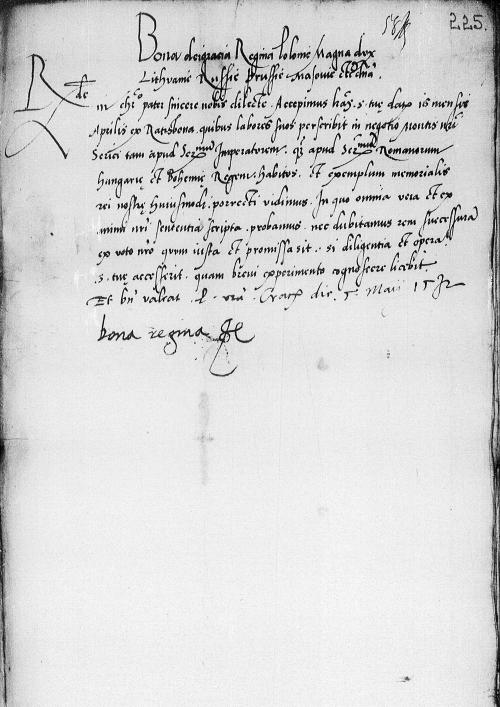 225.
Bona dei gracia Regina Polonie Magna dux
Lithuanie Russie Prussie Masouie etc dna
Rde in chro pater sincere nobis dilecte. Accepimus lras s. tue datas 15 mensis
Aprilis ex Ratisbona quibus labores suos perscribit in negotio Montis nri
Serici tam apud Sermum Imperatorem. q3 apud Sermum Romanorum
Hungarię et Bohemię Regem habitos. et exemplum memorialis
rei nostrę huiusmodi porrecti vidimus. In quo omnia vera et ex
animi nri sententia scripta probamus. nec dubitamus rem successuram
ex voto nro quom iusta et promissa sit. si diligentia et opera
s. tuę accesserit. quam breui experimento cognoscere licebit.
Et bn valeat. Crace die 5 Maii 1532
bona regina